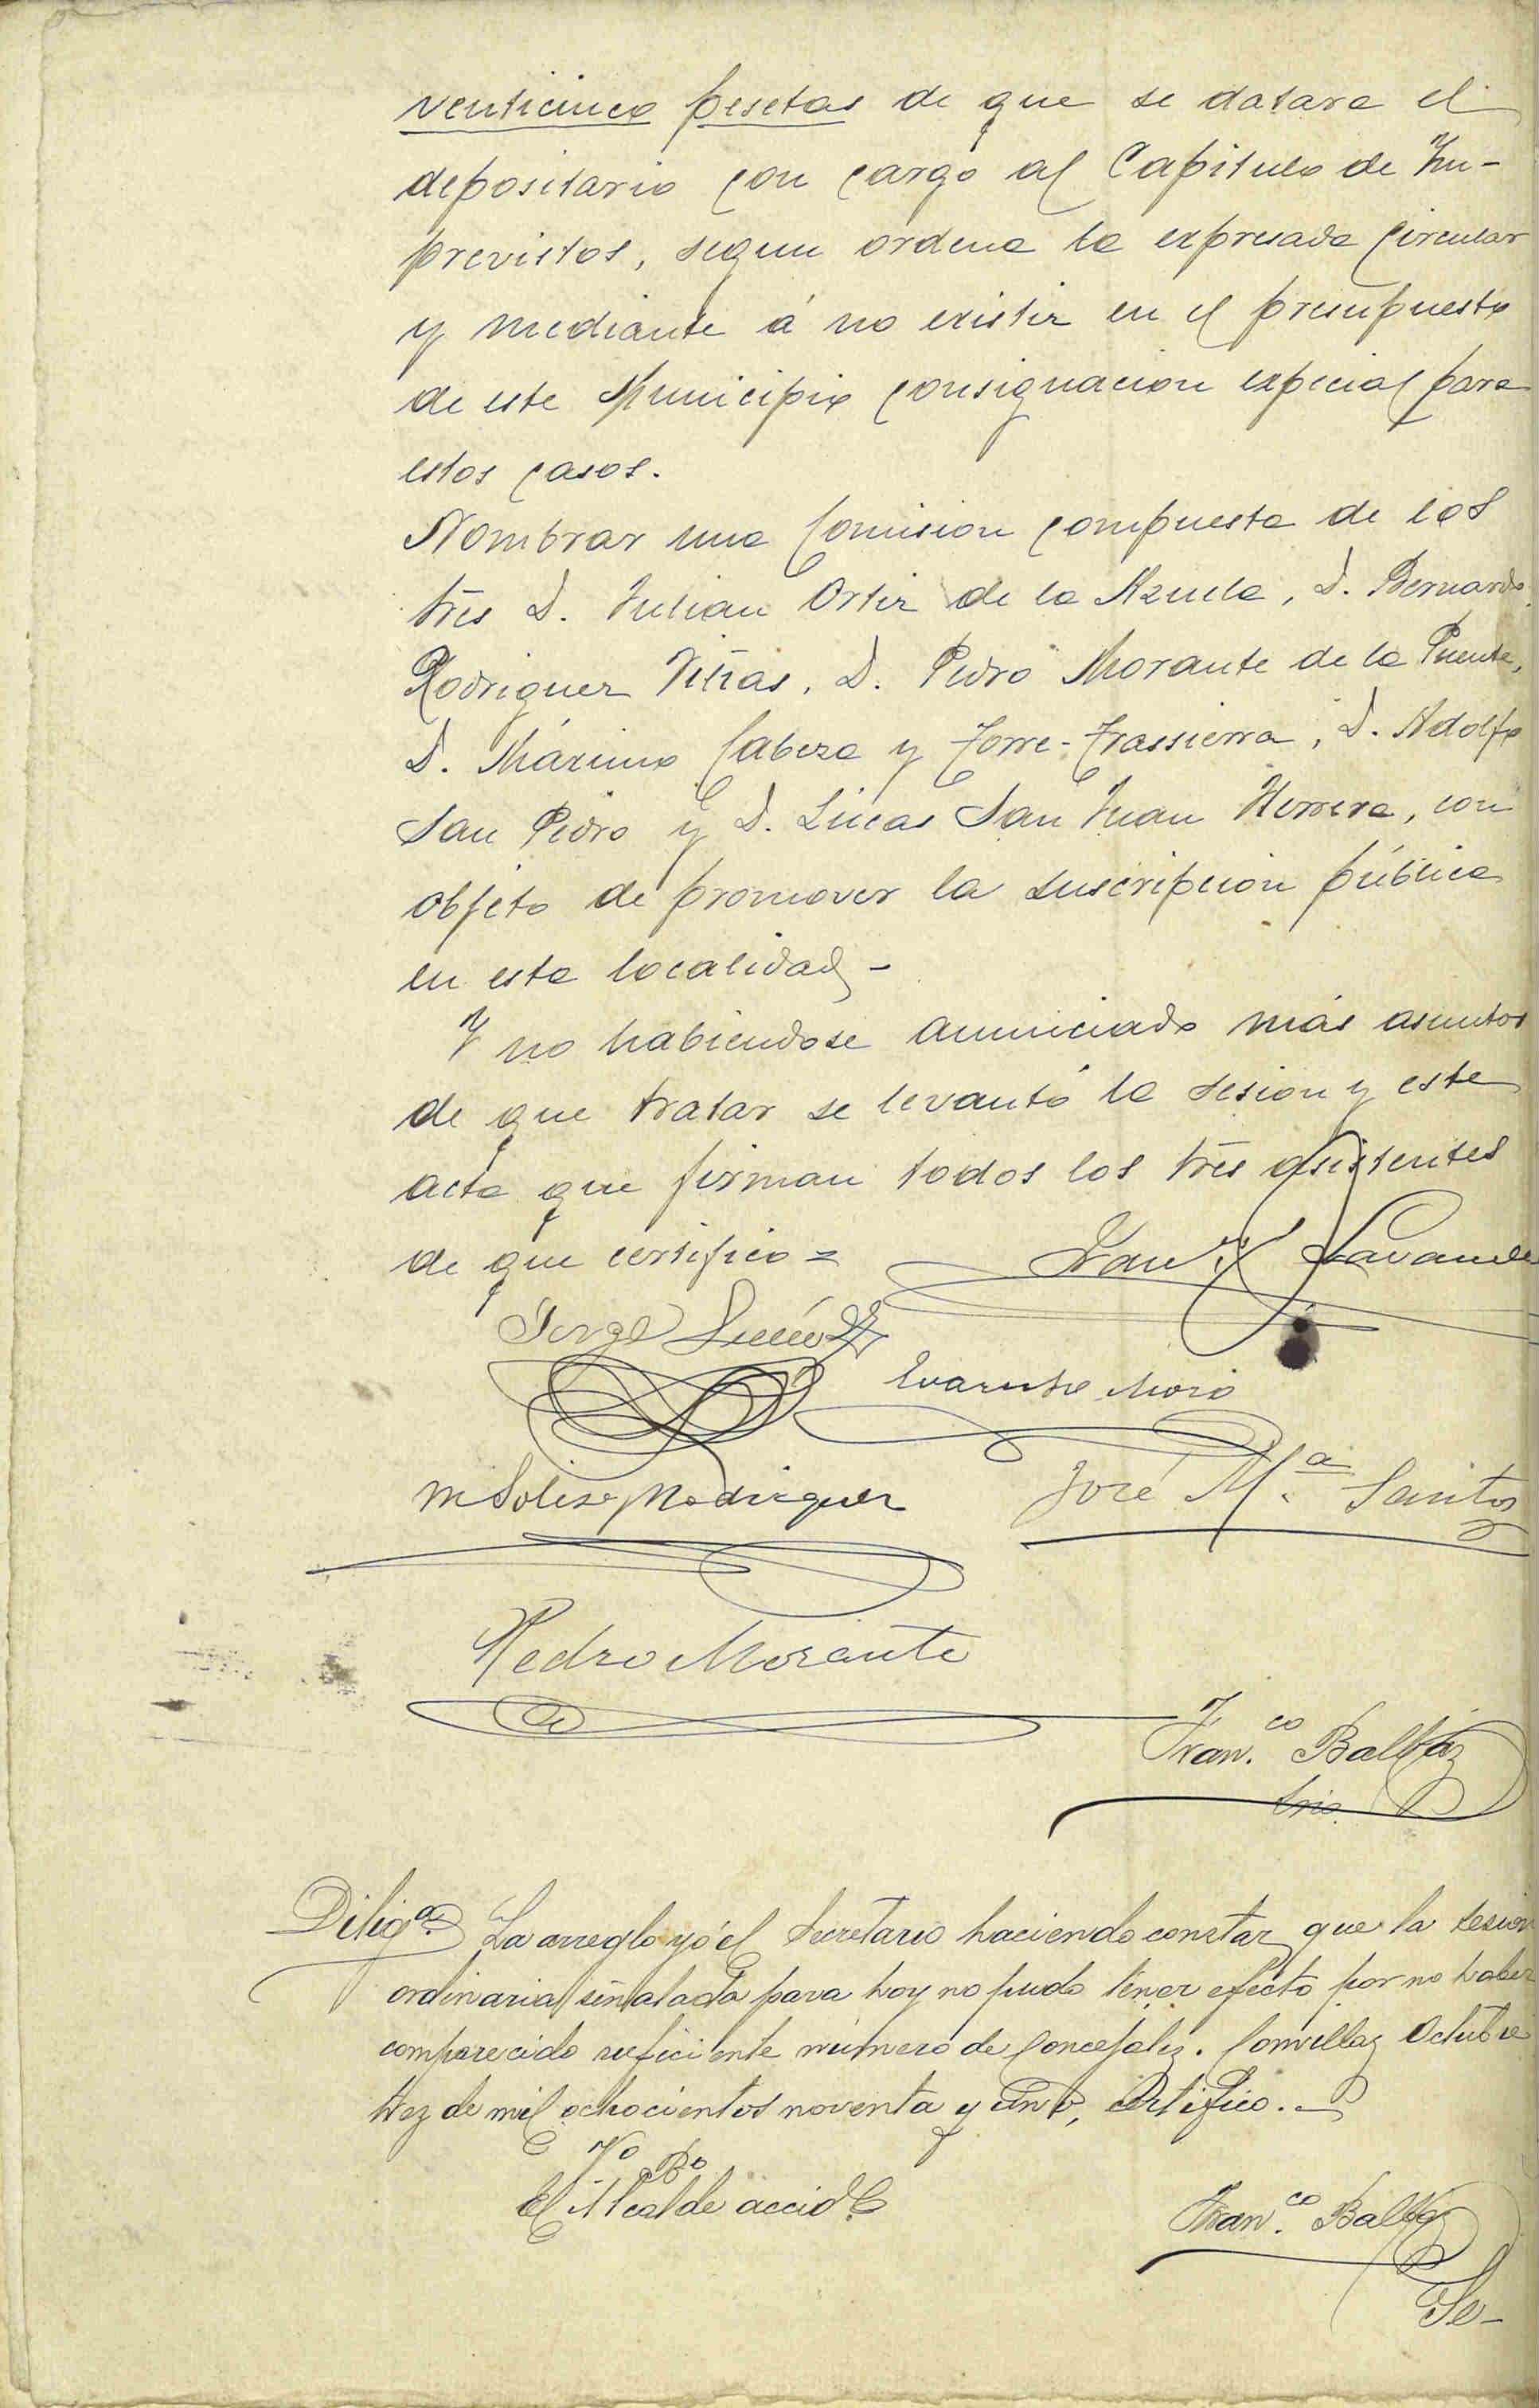 venticinco pesetas de que se datara el
depositario con cargo al Capitulo de Im-
previstos, segun ordena la expresada circular
y mediante á no existir en el presupuesto
de este Municipio consignacion especial para
estos casos.
Nombrar una Comision compuesta de los
Sres D. Julian Ortiz de la Azuela, D. Bernardo
Rodriguez Viñas, D. Pedro Morante de la Puente,
D. Máximo Cabeza y Torre-Trassierra, D. Adolfo
San Pedro y D. Lucas San Juan Herrera, con
objeto de promover la suscripcion pública
en esta localidad -
Y no habiendose anunciado más asuntos
de que tratar se levantó la sesion y este
acta que firman todos los Sres asistentes
de que certifico =
Jorge
Evaristo Moro
M Solis y Rodriguez José Mª Santos
Pedro Morante
Fran.co Balbás
Srio.
Diliga. La arreglo yó el Secretario haciendo constar que la sesion
ordinaria señalada para hoy no pudo tener efecto por no haber
comparecido suficiente número de Concejales. Comillas Octubre
diez de mil ochocientos noventa y uno, certifico.
Vo Bo
El Alcalde accidl
Fran.co Balbás
Se-